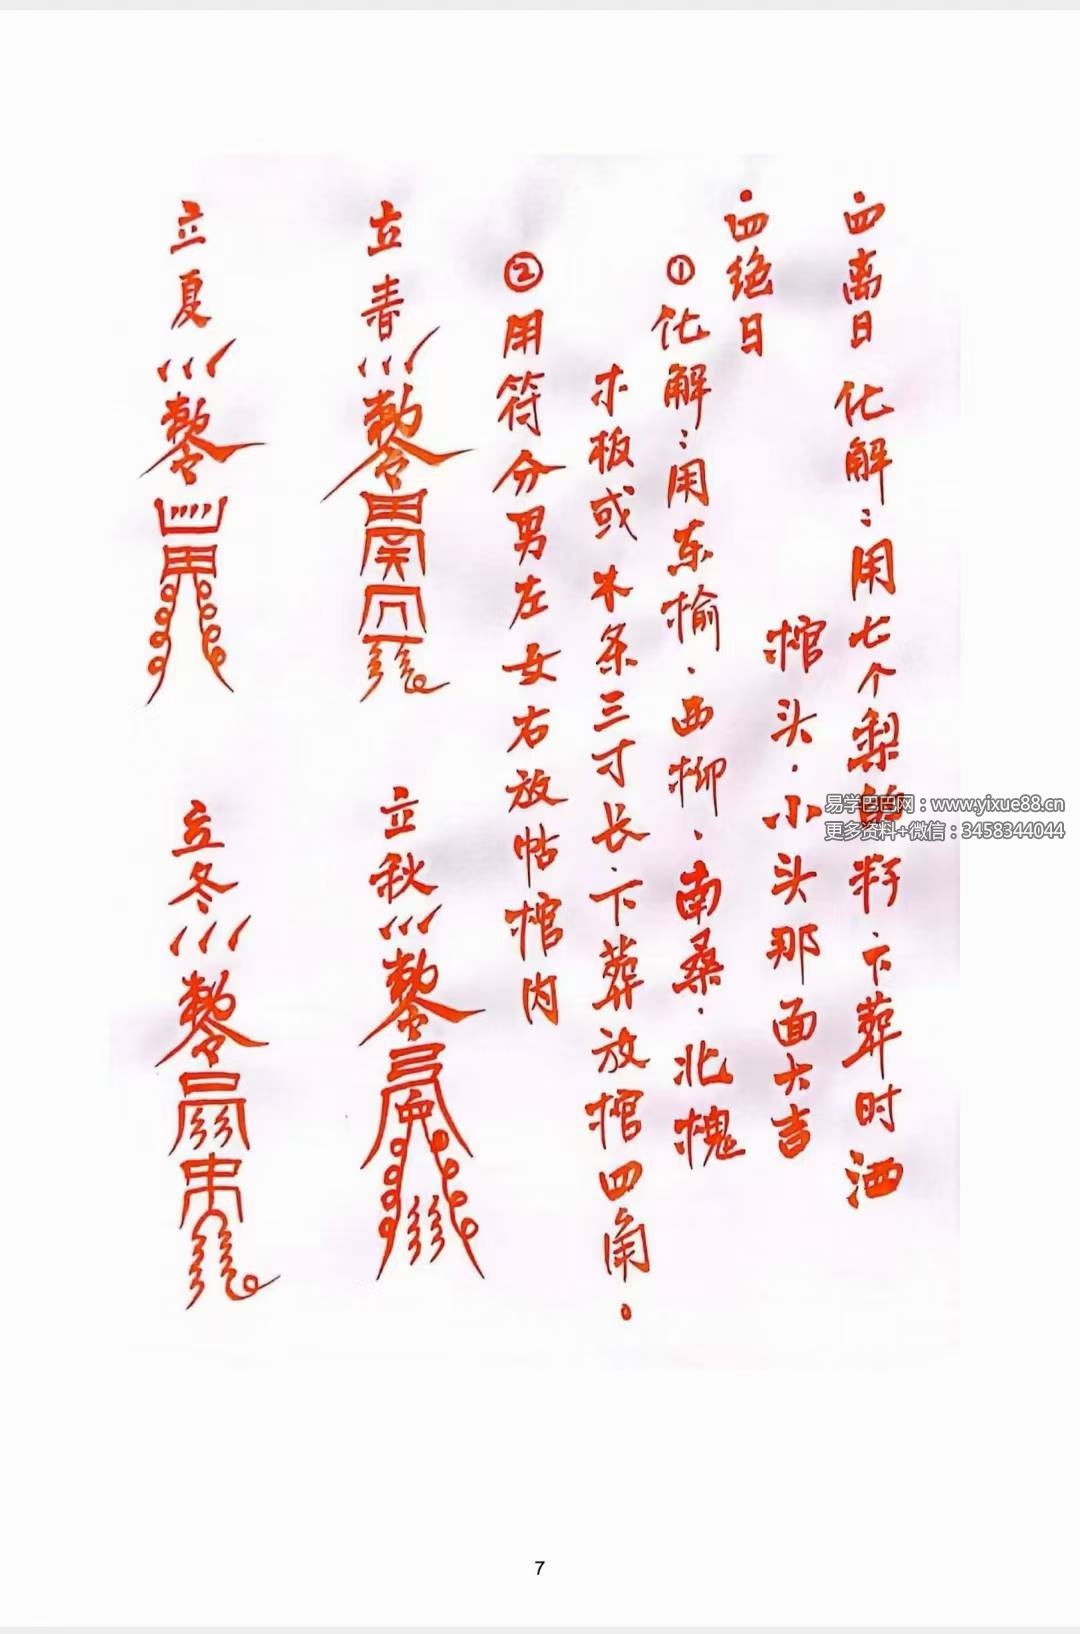 四离日 化解：用七个梨的籽下葬时洒
棺头.小头那面大吉
四绝日
①化解：用东榆.西柳.南桑.北槐
木板或木条三寸长.下葬放棺四角.
②用符分男左女右放帖棺内
立春
立夏
立秋
立冬
易学巴巴网：www.yixue88.cn
更多资料+微信：3458344044
7